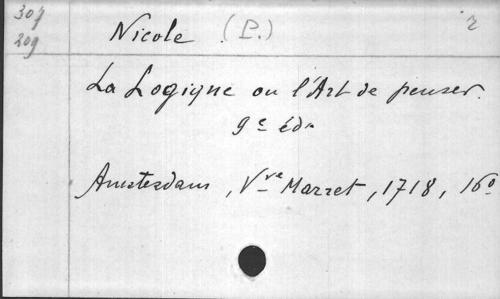 307
209
Nicole (P.) r
La Logique ou l'Art de penser.
9e éd.
Amsterdam, Vve Marret, 1718, 16o